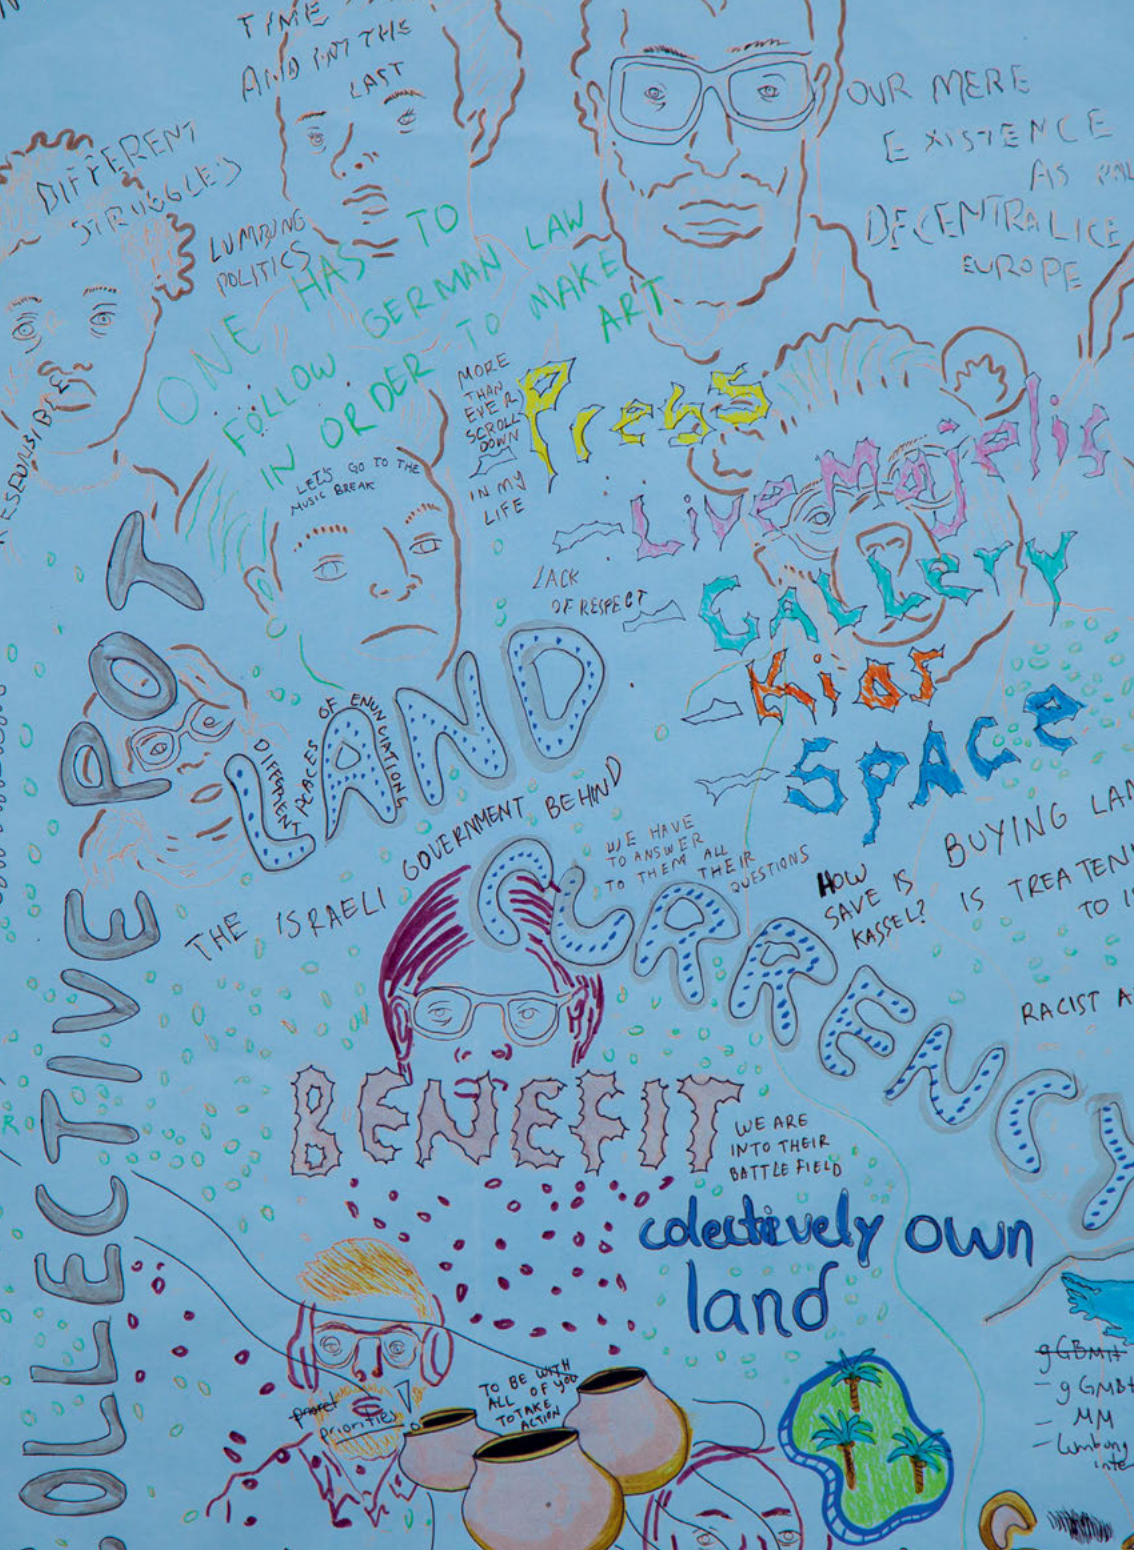 TIME
AND IN THE
LAST
DIFFERENT
STRUGGLES
LUMBUNG
POLITICS
OUR MERE
EXISTENCE
AS
DECENTRALICE
EUROPE
ONE HAS TO
FOLLOW GERMAN LAW
IN ORDER TO MAKE
ART
MORE
THAN
EVER
SCROLL
DOWN
IN MY
LIFE
LET'S GO TO THE
MUSIC BREAK
Press
LiveMajelis
GALLerY
Kios
SPACe
LACK
OF RESPECT
COLLECTIVE POT
LAND
DIFFERENT
PLACES
OF ENUNCIATIONG
THE ISRAELI GOVERNMENT BEHIND
WE HAVE
TO ANSWER
TO THEM ALL
THEIR
QUESTIONS
CURRENCY
HOW
SAVE IS
KASSEL?
BUYING LAN
IS TREATEN
TO IS
RACIST A
BENEFIT
WE ARE
INTO THEIR
BATTLEFIELD
colectively own
land
priorities
TO BE WITH
ALL OF YOU
TO TAKE
ACTION
gGBMH
- gGMBH
- MM
- Lumbung
inte